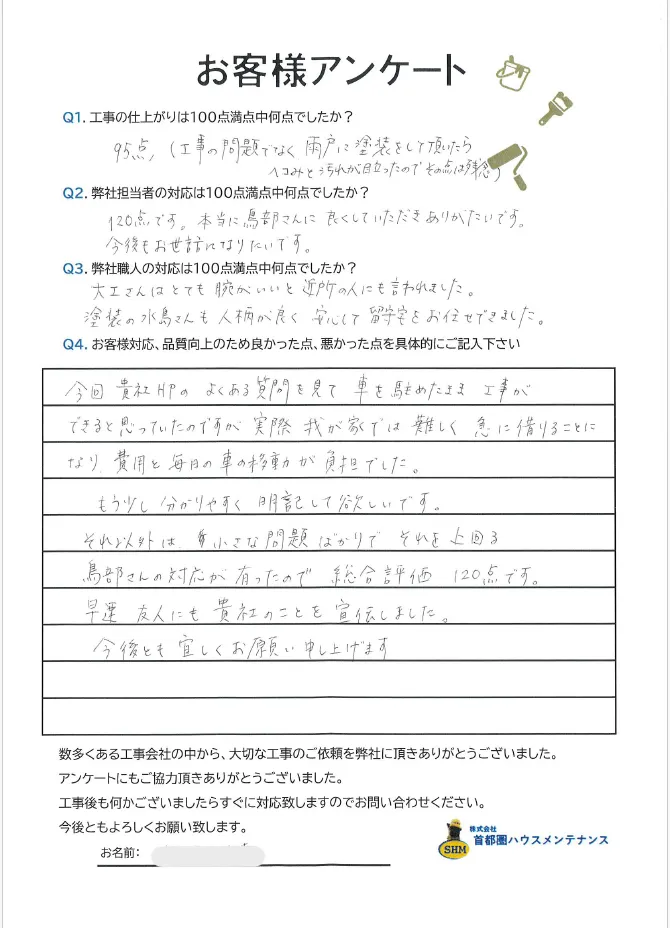 お客様アンケート
Q1. 工事の仕上がりは100点満点中何点でしたか？
95点,（工事の問題でなく 雨戸に塗装をして頂いたら
ヘコみと汚れが目立ったのでその点は残念）
Q2. 弊社担当者の対応は100点満点中何点でしたか？
120点です。本当に鳥部さんに良くしていただきありがたいです。
今後もお世話になりたいです。
Q3. 弊社職人の対応は100点満点中何点でしたか？
大工さんはとても腕がいいと近所の人にも言われました。
塗装の水島さんも人柄が良く 安心して留守宅をお任せできました。
Q4. お客様対応、品質向上のため良かった点、悪かった点を具体的にご記入下さい
今回 貴社HPの よくある質問を見て 車を駐めたまま 工事が
できると思っていたのですが 実際 我が家では 難しく 急に借りることに
なり 費用と毎日の車の移動が 負担でした。
もう少し 分かりやすく 明記して欲しいです。
それ以外は 小さな問題ばかりで それを上回る
鳥部さんの対応が有ったので 総合評価 120点です。
早速 友人にも貴社のことを宣伝しました。
今後とも 宜しくお願い申し上げます
数多くある工事会社の中から、大切な工事のご依頼を弊社に頂きありがとうございました。
アンケートにもご協力頂きありがとうございました。
工事後も何かございましたらすぐに対応致しますのでお問い合わせください。
今後ともよろしくお願い致します。
お名前：
SHM
株式会社
首都圏ハウスメンテナンス